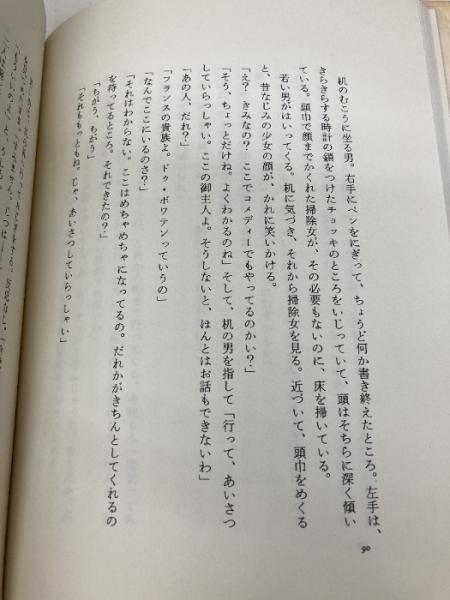 机のむこうに坐る男。右手にペンをにぎって、ちょうど何か書き終えたところ。左手は、
きらきらする時計の鎖をつけたチョッキのところをいじっていて、頭はそちらに深く傾い
ている。頭巾で顔までかくれた掃除女が、その必要もないのに、床を掃いている。
若い男がはいってくる。机に気づき、それから掃除女を見る。近づいて、頭巾をめくる
と、昔なじみの少女の顔が、かれに笑いかける。
「え？　きみなの？　ここでコメディーでもやってるのかい？」
「そう、ちょっとだけね。よくわかるのね」そして、机の男を指して「行って、あいさつ
していらっしゃい。ここの御主人よ。そうしないと、ほんとはお話もできないわ」
「あの人、だれ？」
「フランスの貴族よ。ドゥ・ポワテンっていうの」
「なんでここにいるのさ？」
「それはわからない。ここはめちゃめちゃになってるの。だれかがきちんとしてくれるの
を待ってるところ。それできたの？」
「ちがう、ちがう」
「それももっともね。じゃ、あいさつしていらっしゃい」
90